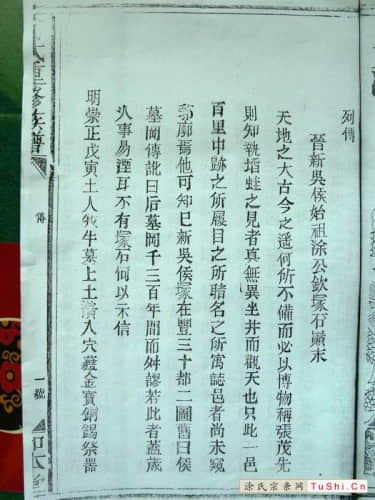 列傳
晉新吳侯始祖涂公欽塚石顚末
天地之大古今之遥何所不備而必以博物稱張茂先
則知執㙮蛙之見者真無異坐井而觀天也只此一邑
百里中跡之所履目之所睹名之所寓誌邑者尚未窺
郛廓焉他可知已新吳侯塚在豐三十都二圖舊曰侯
墓岡傳訛曰后墓岡千三百年間而舛謬若此者蓋歲
久事易湮耳不有塚石何以示信
明崇正戊寅土人牧牛墓上土潰入穴藏金寶銅錫祭器
重修族譜
傳
一號
涂氏宗亲网
TuShi.Cn